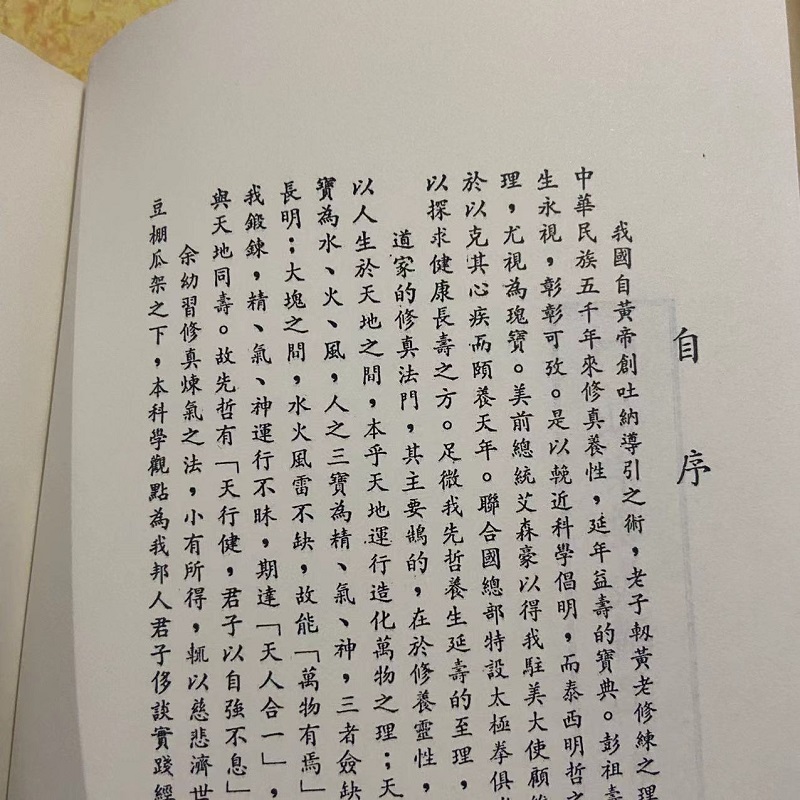 自序
我國自黃帝創吐納導引之術，老子韌黃老修練之理
中華民族五千年來修真養性，延年益壽的寶典。彭祖壽
生永視，彰彰可攷。是以輓近科學倡明，而泰西明哲之
理，尤視為瑰寶。美前總統艾森豪以得我駐美大使顧
於以克其心疾而頤養天年。聯合國總部特設太極拳俱
以探求健康長壽之方。足微我先哲養生延壽的至理，
道家的修真法門，其主要鵠的，在於修養靈性，
以人生於天地之間，本乎天地運行造化萬物之理；天
寶為水、火、風，人之三寶為精、氣、神，三者僉缺
長明；大塊之間，水火風雷不缺，故能「萬物有焉」
我鍛鍊，精、氣、神運行不昧，期達「天人合一」，
與天地同壽。故先哲有「天行健，君子以自強不息」
余幼習修真煉氣之法，小有所得，輒以慈悲濟世
豆棚瓜架之下，本科學觀點為我邦人君子侈談實踐經